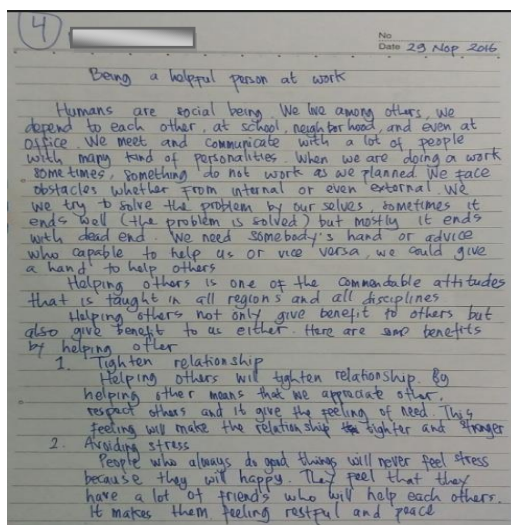 4
No
Date 29 Nop 2016
Being a helpful person at work
Humans are social being. We live among others, we
depend to each other, at school, neighborhood, and even at
office. We meet and communicate with a lot of people
with many kind of personalities. When we are doing a work
sometimes, something do not work as we planned. We face
obstacles whether from internal or even external. We
we try to solve the problem by our selves, sometimes it
ends well (the problem is solved) but mostly it ends
with dead end. We need somebody's hand or advice
who capable to help us or vice versa, we could give
a hand to help others
Helping others is one of the commendable attitudes
that is taught in all regions and all disciplines
Helping others not only give benefit to others but
also give benefit to us either. Here are some benefits
by helping other
1. Tighten relationship
Helping others will tighten relationship. By
helping other means that we appreciate other,
respect others and it give the feeling of need. This
feeling will make the relationship tighter and stronger
2. Avoiding stress
People who always do good things will never feel stress
because they will happy. They feel that they
have a lot of friends who will help each others.
It makes them feeling restful and peace